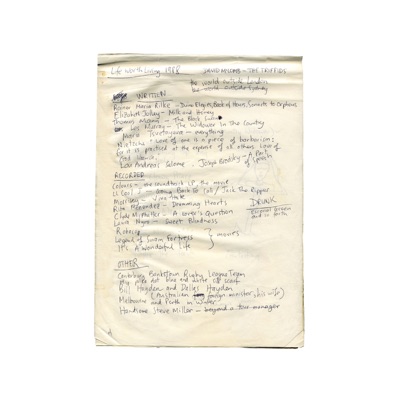 Life Worth Living 1988
DAVID MCCOMB - THE TRIFFIDS
the world outside London
the world outside Sydney
WRITTEN
Rainer Maria Rilke - Duino Elegies, Book of Hours, Sonnets to Orpheus
Elizabeth Jolley - Milk and Honey
Thomas - The Black
Les Murray - The Widower in the Country
Marina Tsvetayeva - everything
Nietzsche: Love of one is a piece of barbarism:
for it is practised at the expense of all others. Love of
God likewise.
Lou Andreas Salome, Joseph Brodsky - A Part
of Speech
RECORDED
Colours - the soundtrack LP, the movie
LL Cool J - Going Back to Cali / Jack the Ripper
Morrissey - Viva Hate
Rita - Dreaming Hearts
Clyde McPhatter - A Lover's Question
Laura Nyro - Sweet Blindness
DRUNK
Robocop
Legend of Suram Fortress
It's A Wonderful Life
} movies
OTHER
Canterbury Bankstown Rugby League Team
Big polka dot blue and white silk scarf
Bill Hayden and Dallas Hayden
(Australian foreign minister)
Melbourne and Perth in Winter
Handsome Steve Miller - beyond a tour manager